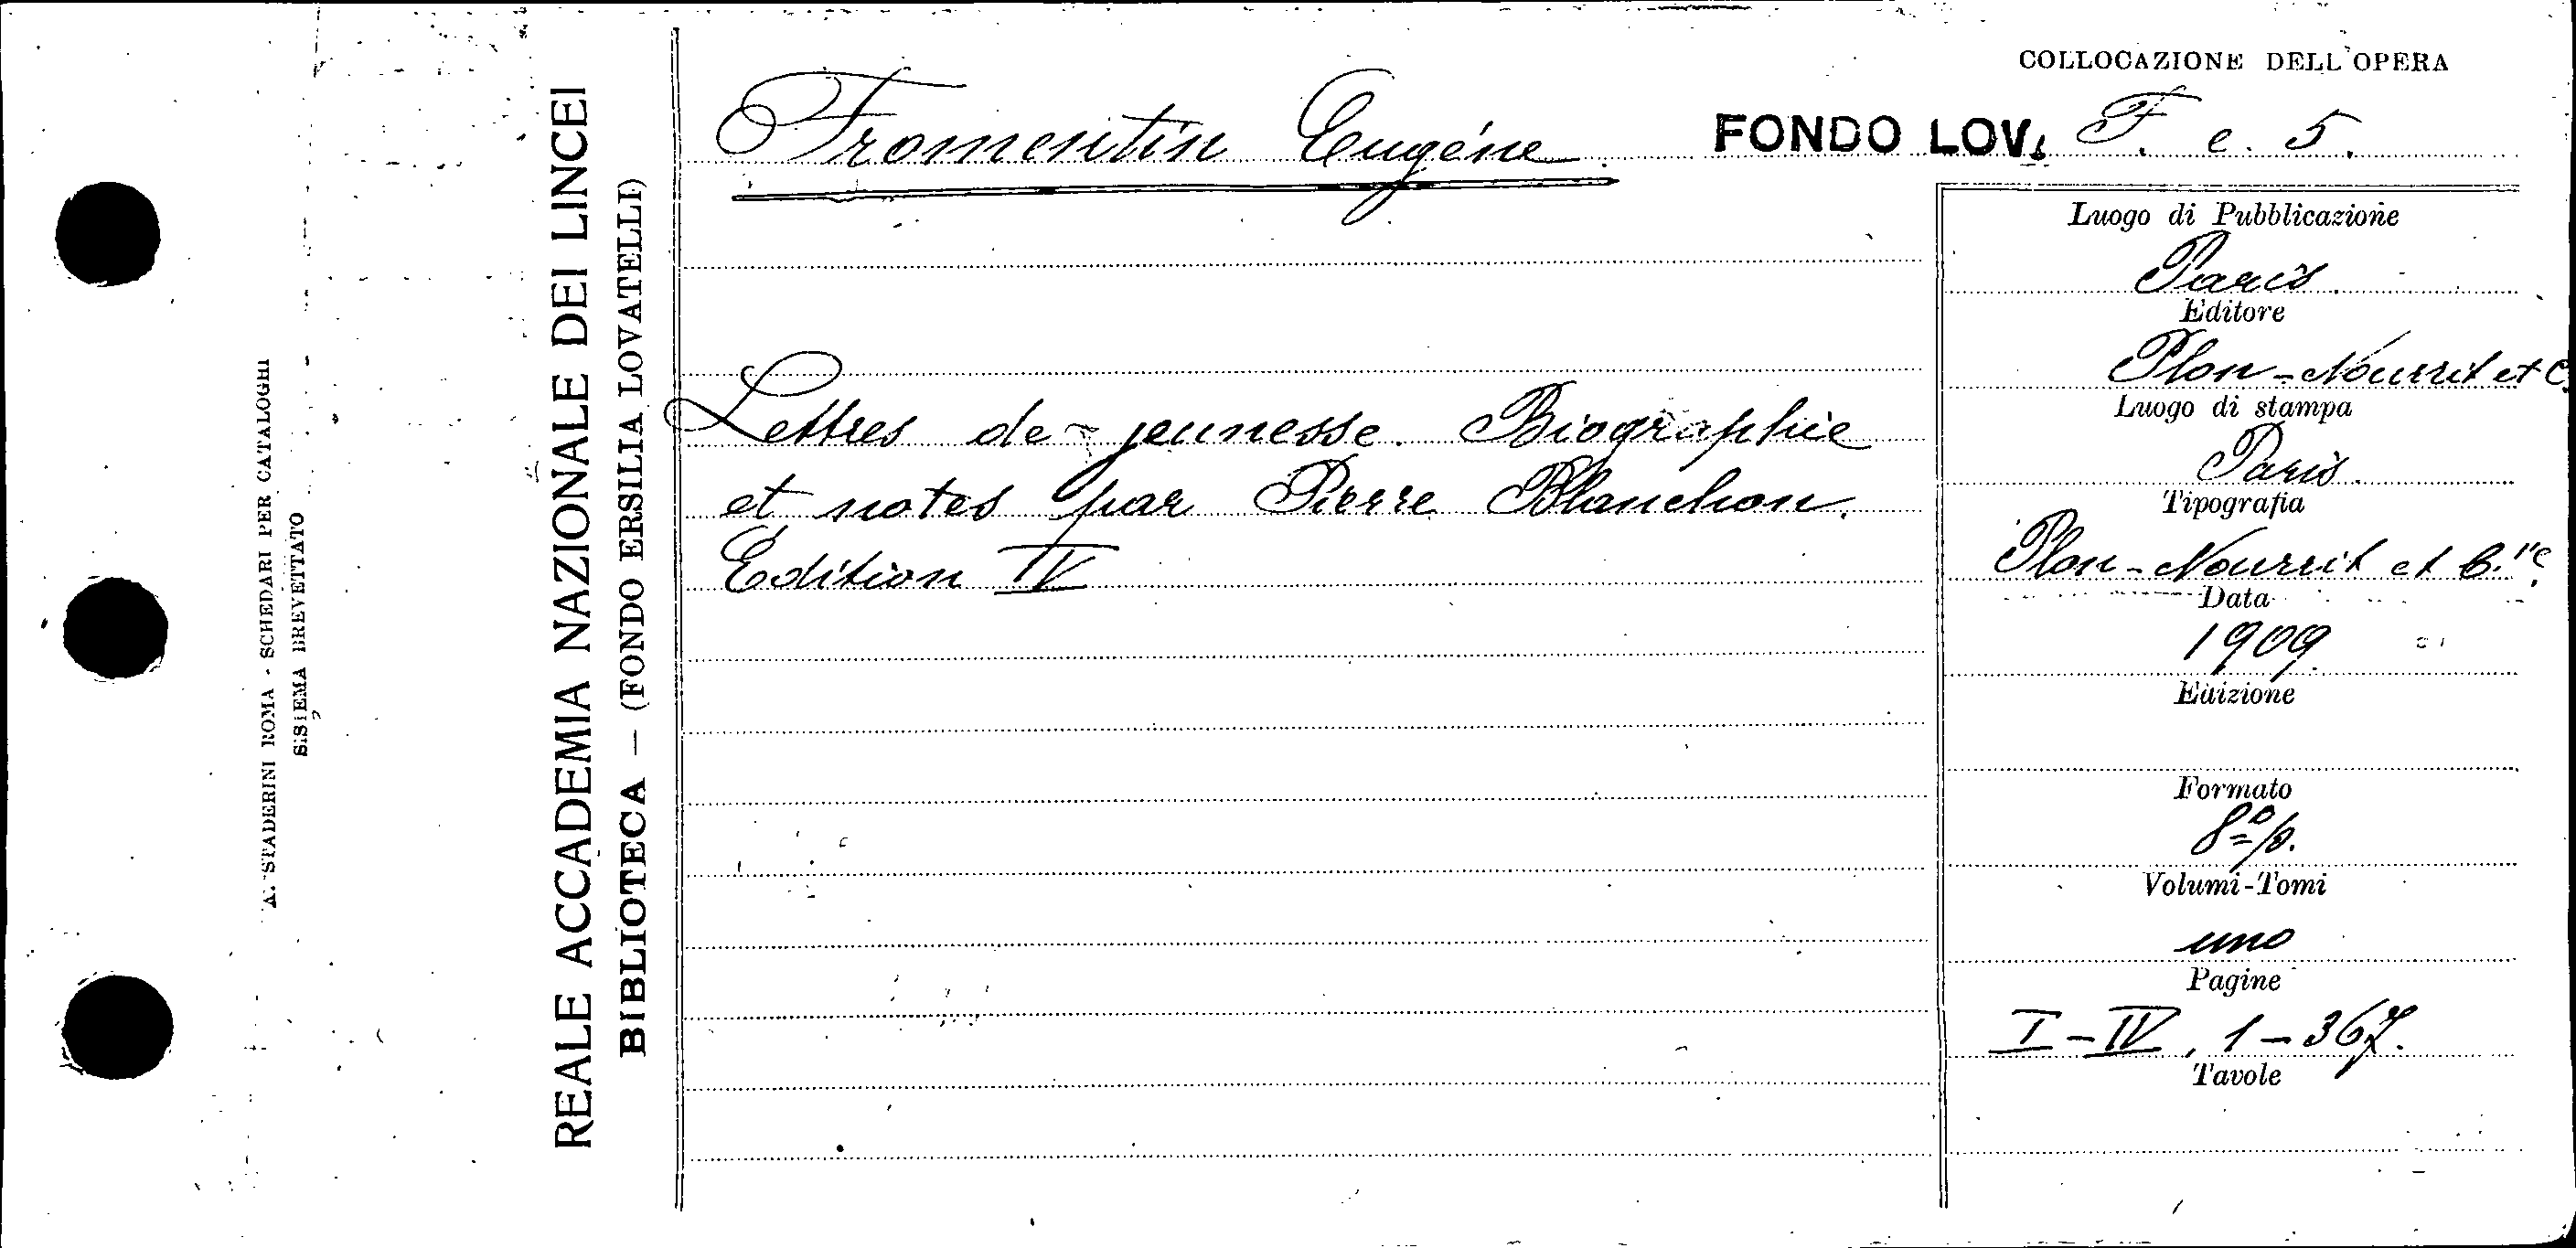 COLLOCAZIONE DELL'OPERA
Fromentin Eugéne
FONDO LOV. F. e. 5.
Lettres de jeunesse. Biographie
et notes par Pierre Blanchon.
Édition IV
Luogo di Pubblicazione
Paris
Editore
Plon-Nourrit et C
Luogo di stampa
Paris.
Tipografia
Plon-Nourrit et C.ie
Data
1909
Edizione
Formato
8º p.
Volumi-Tomi
uno
Pagine
I-IV, 1-367.
Tavole
REALE ACCADEMIA NAZIONALE DEI LINCEI
BIBLIOTECA — (FONDO ERSILIA LOVATELLI)
A. STADERINI ROMA - SCHEDARI PER CATALOGHI
SISTEMA BREVETTATO